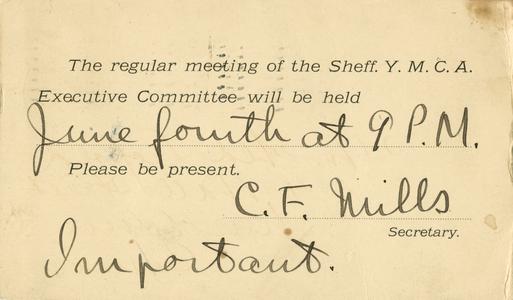 The regular meeting of the Sheff. Y. M. C. A.
Executive Committee will be held
June fourth at 9 P.M.
Please be present.
C. F. Mills
Secretary.
Important.